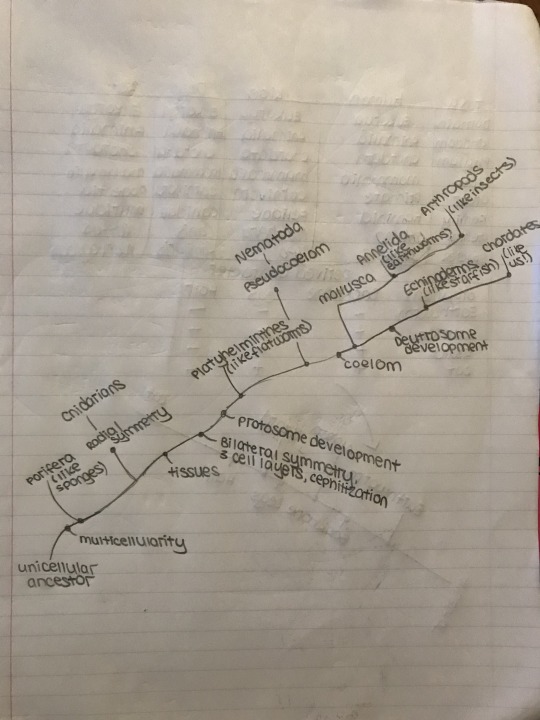 Nematoda
Pseudocoelom
Arthropods
(like insects)
Annelida
(like
earthworms)
mollusca
Chordates
(like
us!)
Echinoderms
(like starfish)
Deutrosome
development
coelom
Platyhelminthes
(like flatworms)
Cnidarians
Radial
symmetry
protosome development
Bilateral symmetry,
3 cell layers, cephilization
tissues
Porifera
(like
sponges)
multicellularity
unicellular
ancestor